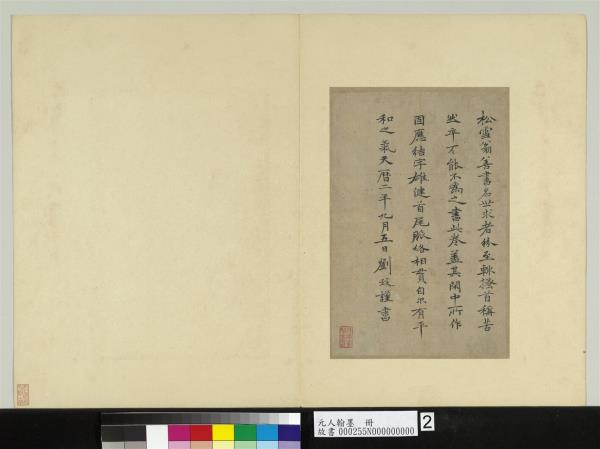 松雪翁善書名世求者沓至輒搔首稱苦
然卒不能不為之書此卷蓋其閑中所作
因應結字雄健首尾脈絡相貫自然有平
和之氣天曆二年九月五日劉致謹書
元人翰墨 冊
故書 000255N000000000
2